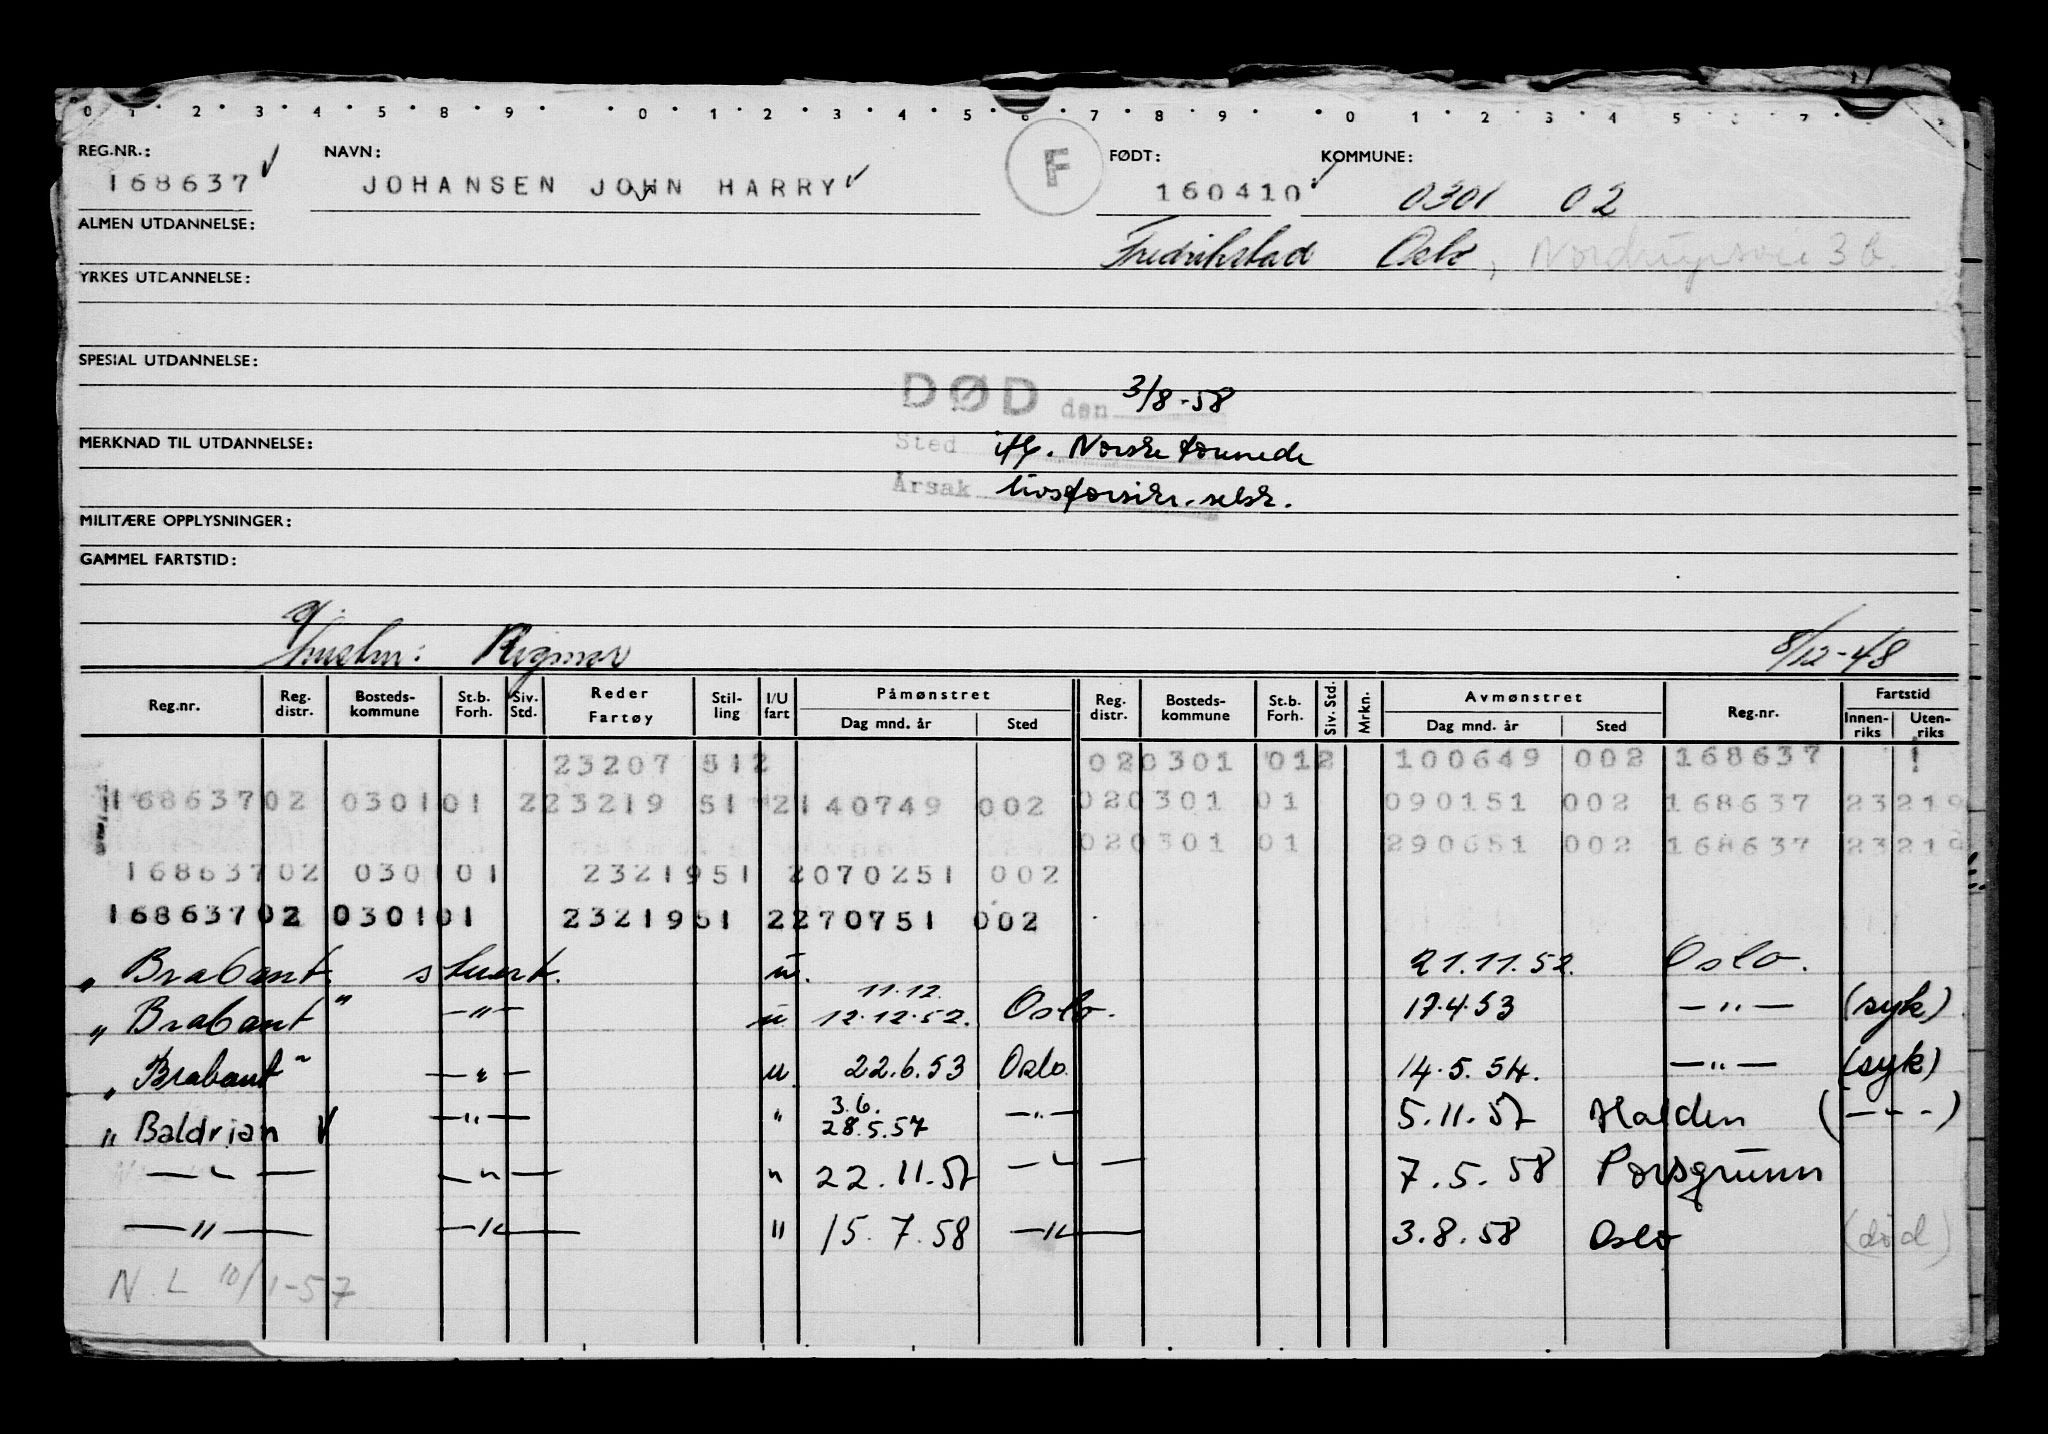 0 1 2 3 4 5 8 9 0 1 2 3 4 5 6 7 8 9 0 1 2 3 4 5 7
REG.NR.: NAVN: F FØDT: KOMMUNE:
168637 JOHANSEN JOHN HARRY 160410 0301 02
ALMEN UTDANNELSE:
Fredrikstad Oslo, 3 b.
YRKES UTDANNELSE:
SPESIAL UTDANNELSE:
DØD den 3/8-58
MERKNAD TIL UTDANNELSE: Sted iflg. Norske forenede
Årsak livsforsikr.-selsk.
MILITÆRE OPPLYSNINGER:
GAMMEL FARTSTID:
g/:
hustru: Rigmor 8/12-48
Reg.nr. Reg. distr. Bosteds-kommune St.b. Forh. Siv. Std. Reder Fartøy Stil-ling I/U fart Påmønstret Dag mnd. år Sted Reg. distr. Bosteds-kommune St.b. Forh. Siv. Std. Mrkn. Avmønstret Dag mnd. år Sted Reg.nr. Fartstid Innen-riks Uten-riks
23207 512 020301 012 100649 002 168637 1
16863702 030101 223219 51 2140749 002 020301 01 090151 002 168637 23219
020301 01 290651 002 168637 23219
16863702 030101 2321951 2070251 002
16863702 030101 2321951 2270751 002
„ Brabant. stuert. u. 21.11.52. Oslo.
11.12.
„ Brabant" —"— u 12.12.52. Oslo. 17.4.53 —"— (syk)
„ Brabant" —"— u 22.6.53 Oslo. 14.5.54. —"— (syk)
3.6.
„ Baldrian —"— " 28.5.57 —"— 5.11.57 Halden (—"—)
—"— —"— " 22.11.57 —"— 7.5.58 Porsgrunn
—"— —"— " 15.7.58 —"— 3.8.58 Oslo (død)
N.L 10/1-57